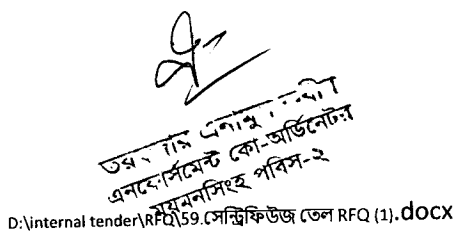 এনফোর্সমেন্ট কো-অর্ডিনেটর
ময়মনসিংহ পবিস-২
D:\internal tender\RFQ\59.সেন্ট্রিফিউজ তেল RFQ (1).docx